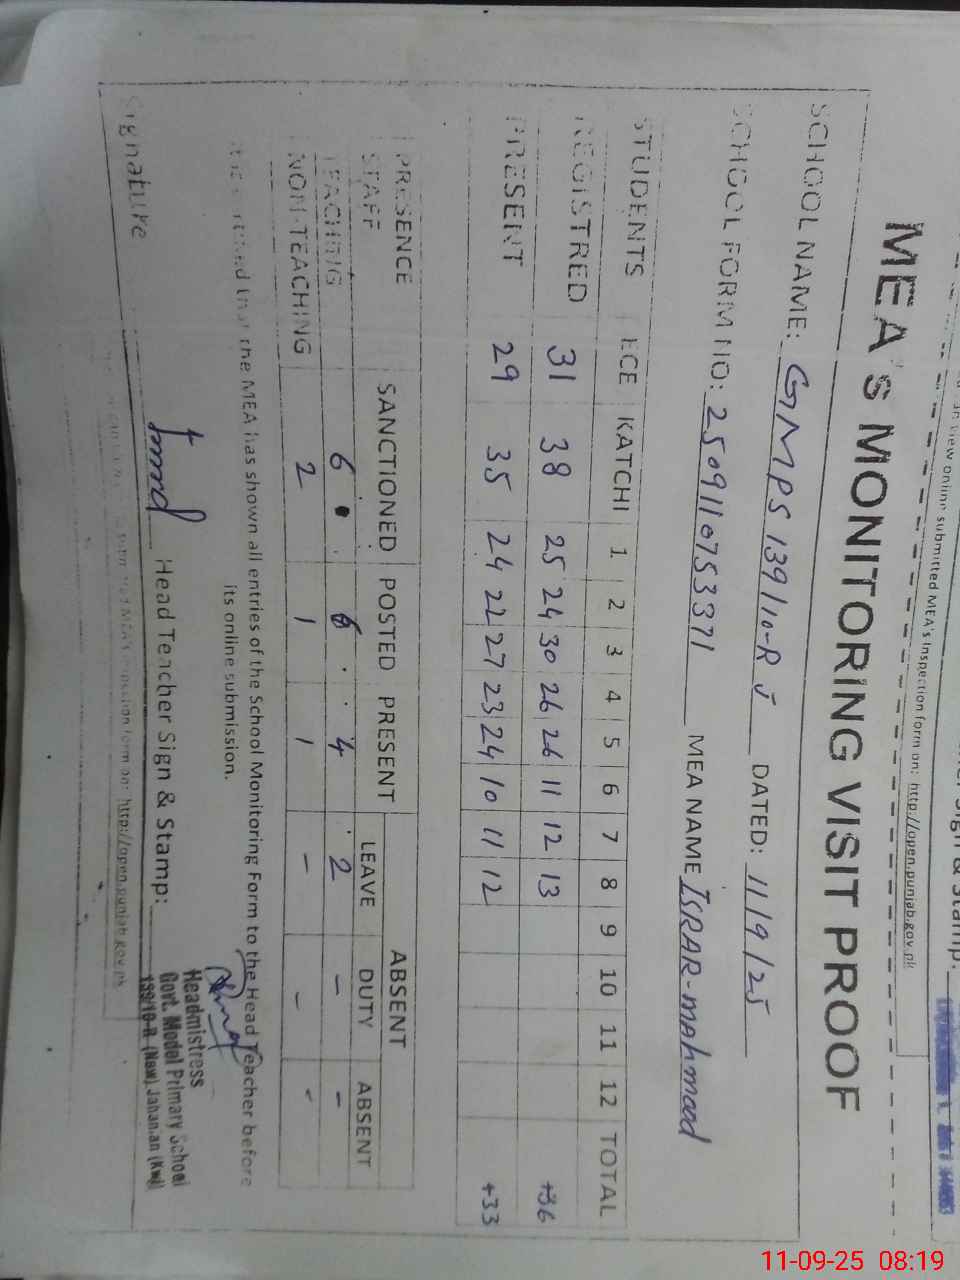 submitted MEA's Inspection form on: http://open.punjab.gov.pk
MEA's MONITORING VISIT PROOF
SCHOOL NAME: GMPS 139/10-R J DATED: 11/9/25
SCHOOL FORM NO: 250911075337 1 MEA NAME ISRAR-mahmood
STUDENTS ECE KATCHI 1 2 3 4 5 6 7 8 9 10 11 12 TOTAL
REGISTRED 31 38 25 24 30 26 26 11 12 13 +36
PRESENT 29 35 24 22 27 23 24 10 11 12 +33
PRESENCE ABSENT
STAFF SANCTIONED POSTED PRESENT LEAVE DUTY ABSENT
TEACHING 6 6 4 2 - -
NON-TEACHING 2 1 1 - - -
the MEA has shown all entries of the School Monitoring Form to the Head Teacher before
its online submission.
Signature Head Teacher Sign & Stamp:
Headmistress
Govt. Model Primary School
139/10-R (New) Jahanian (Kwl)
form on: http://open.punjab.gov.pk
11-09-25 08:19